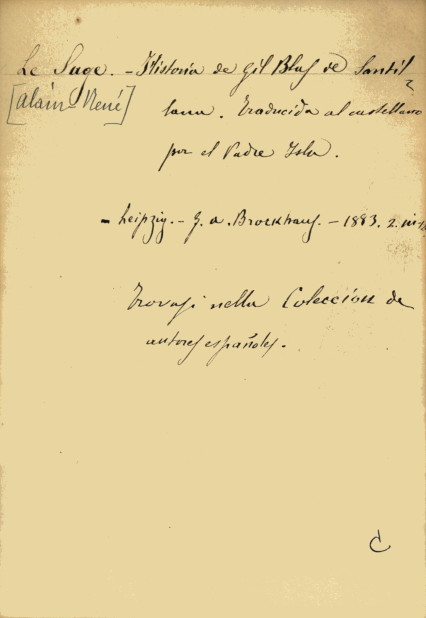 Le Sage. - Historia de Gil Blas de Santil
[Alain-René]
lana. Traducida al castellano
por el Padre Isla.
- Leipzig. - F. A. Brockhaus. - 1883. 2. in
Trovasi nella Coleccion de
autores españoles.
C